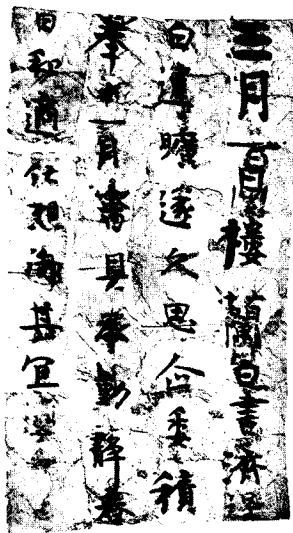 三月一日樓蘭白書濟逞
白違曠遂久思企委積
奉十一月書具承動靜春
日和適伏想御其宜